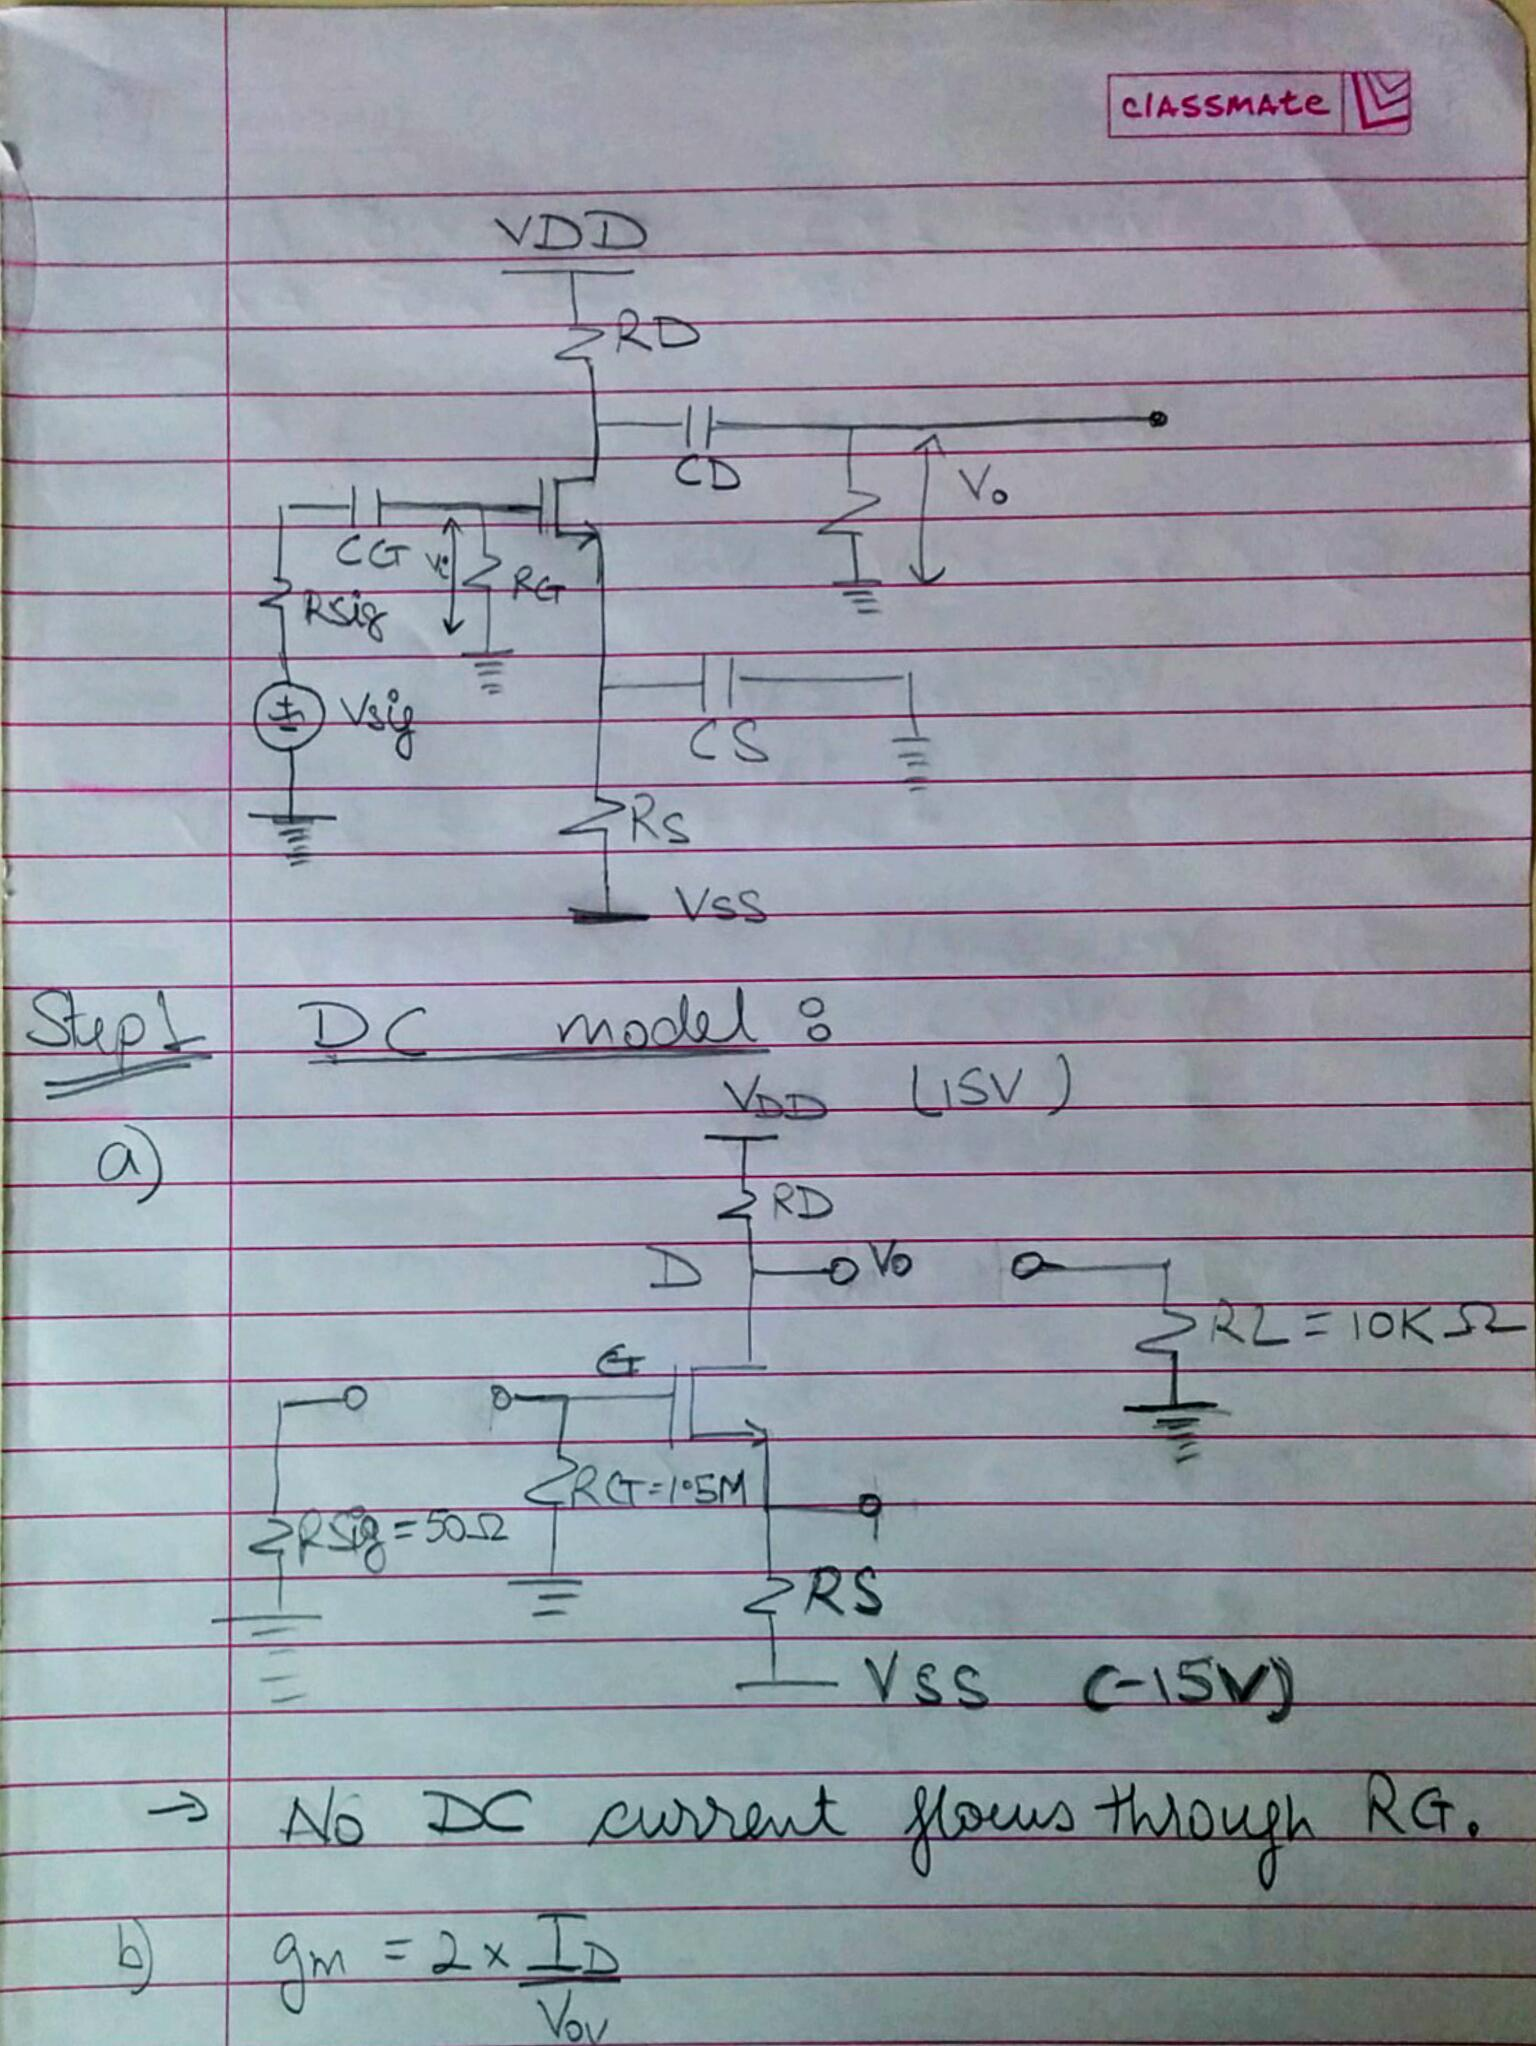 classmate
VDD
RD
CD
Vo
CG
Vi
RG
Rsig
Vsig
CS
RS
VSS
Step 1 DC model :
VDD (15V)
a)
RD
D
Vo
RL = 10KΩ
G
RG=1.5M
Rsig = 50Ω
RS
VSS (-15V)
→ No DC current flows through RG.
b) gm = 2 x ID
Vov